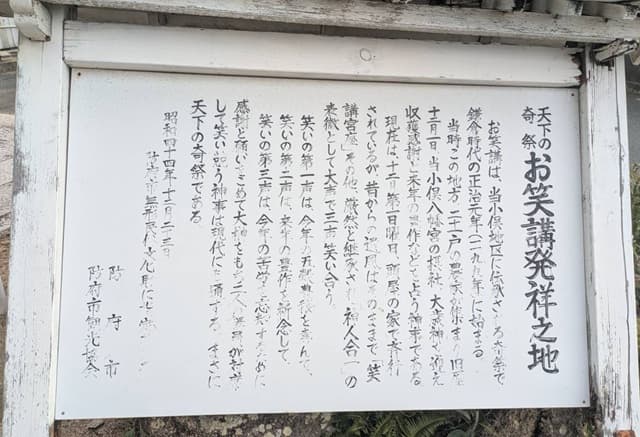 天下の
奇祭
お笑講発祥之地
お笑講は、当小俣地区に伝承さ る奇祭で
鎌倉時代の正治元年(一一九九年)に始まる
当時この地方 二十一戸の農家が集まり 旧暦
十二月一日、当小俣八幡宮の摂社、大歳神を迎え
収穫感謝と来年の豊作を という神事である
現在は十二月第一日曜日、頭屋の家で斉行
されているが昔からの はそのままで、笑
講宮座 その他 厳然と継承され、神人合一の
象徴として大声で三声笑い合う。
笑いの第一声は、今年の を喜んで、
笑いの第二声は、来年の豊作を祈念して、
笑いの第三声は、今年の苦労を忘れるために
感謝と願いをこめて大榊をもち二人 が対座
して笑い合う神事は現代にも通ずる、まさに
天下の奇祭である。
昭和四十四年十二月二十三日
防府市無形民俗文化財に
防府市
防府市観光協会